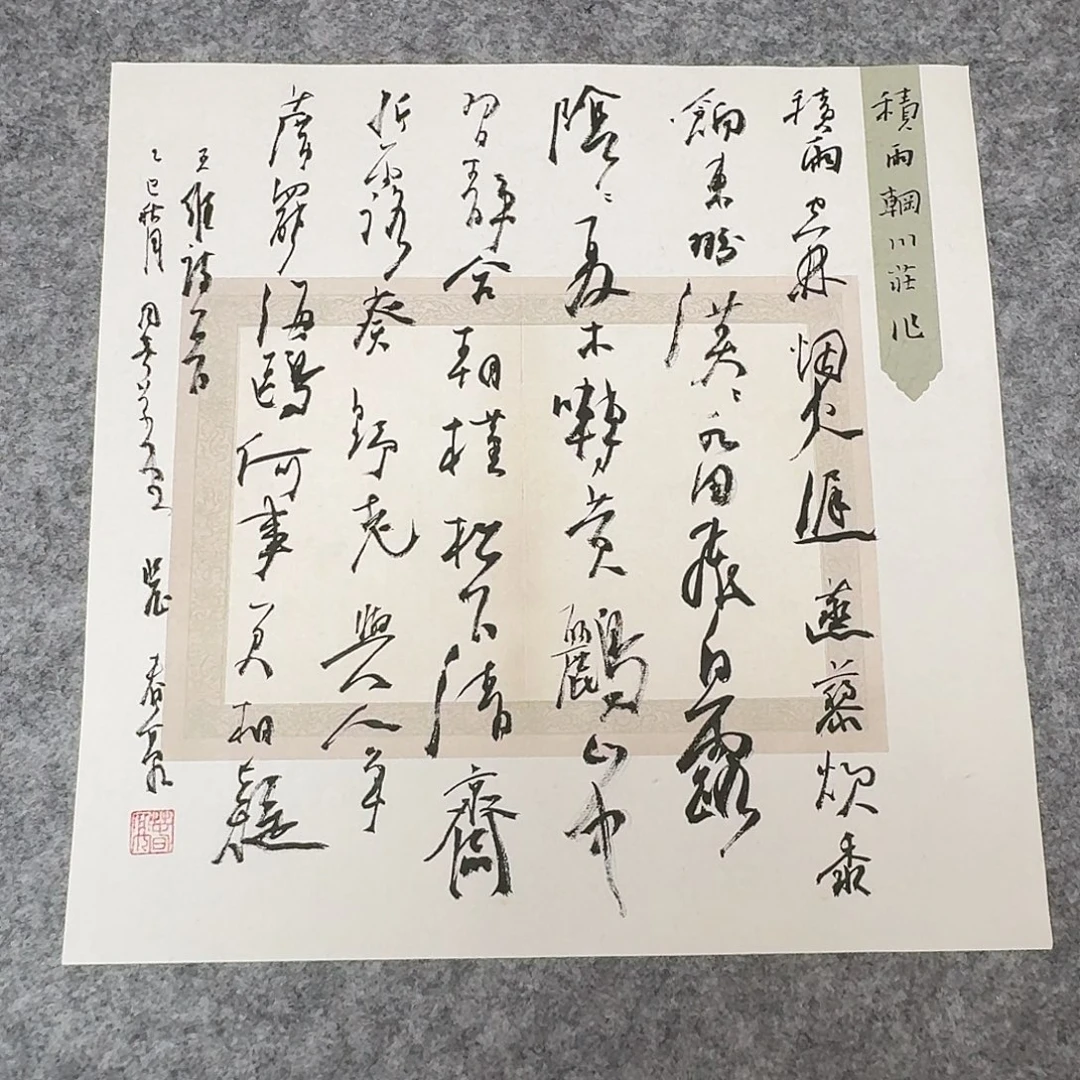 積雨輞川莊作
積雨空林烟火遲蒸藜炊黍
餉東菑漠〻水田飛白鷺
陰〻夏木囀黃鸝山中
習靜朝槿松下清齋
折露葵野老與人爭
席罷海鷗何事更相疑
王維詩一首
乙巳秋月 春